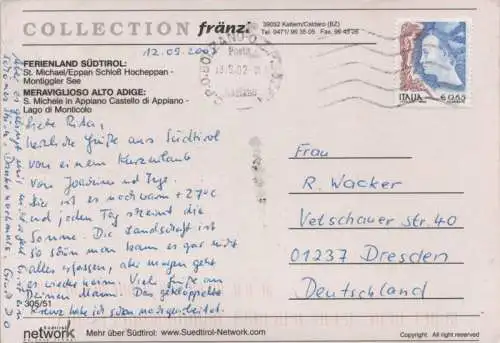 COLLECTION fränzi
39052 Kaltern/Caldaro (BZ)
Tel. 0471/96 35 05 Fax. 96 43 26
12.09.2002
FERIENLAND SÜDTIROL:
St. Michael/Eppan Schloß Hocheppan -
Montiggler See
MERAVIGLIOSO ALTO ADIGE:
S. Michele in Appiano Castello di Appiano -
Lago di Monticolo
Posta
ITALIA € 0,52
Liebe Rita,
herzliche Grüße aus Südtirol
von einem Kurzurlaub
von Joachim und Inge.
Hier ist es noch warm +27°C
und jeden Tag scheint die
Sonne. Die Landschaft ist
so schön man kann es gar nicht
alles erfassen, aber morgen geht
es wieder heim. Viele Grüße an
Deinen Mann. Das geklöppelte
Kreuz habe ich schon
Frau
R. Wacker
Vetschauer str. 40
01237 Dresden
Deutschland
305/51
südtirol
network
Mehr über Südtirol: www.Suedtirol-Network.com
Copyright. All rights reserved